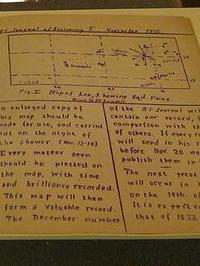 R.I. Journal of Astronomy 5 November, 1916
Fig. I Map of Leo, Showing Rad. Point.
an enlarged copy of
this map should be
made for use, and carried
out on the night of
the shower. (Nov. 13-14)
Every meteor seen
should be plotted on
the map, with time
and brilliancy recorded.
This map will then
form a valuable record.
The December number
of the R.I. Journal will
contain our record,
comparison with th
of others. If every
will send in his r
before Nov. 20 we
publish them in
The next great
will occur in
on the 14th of
It is expected
that of 1833.